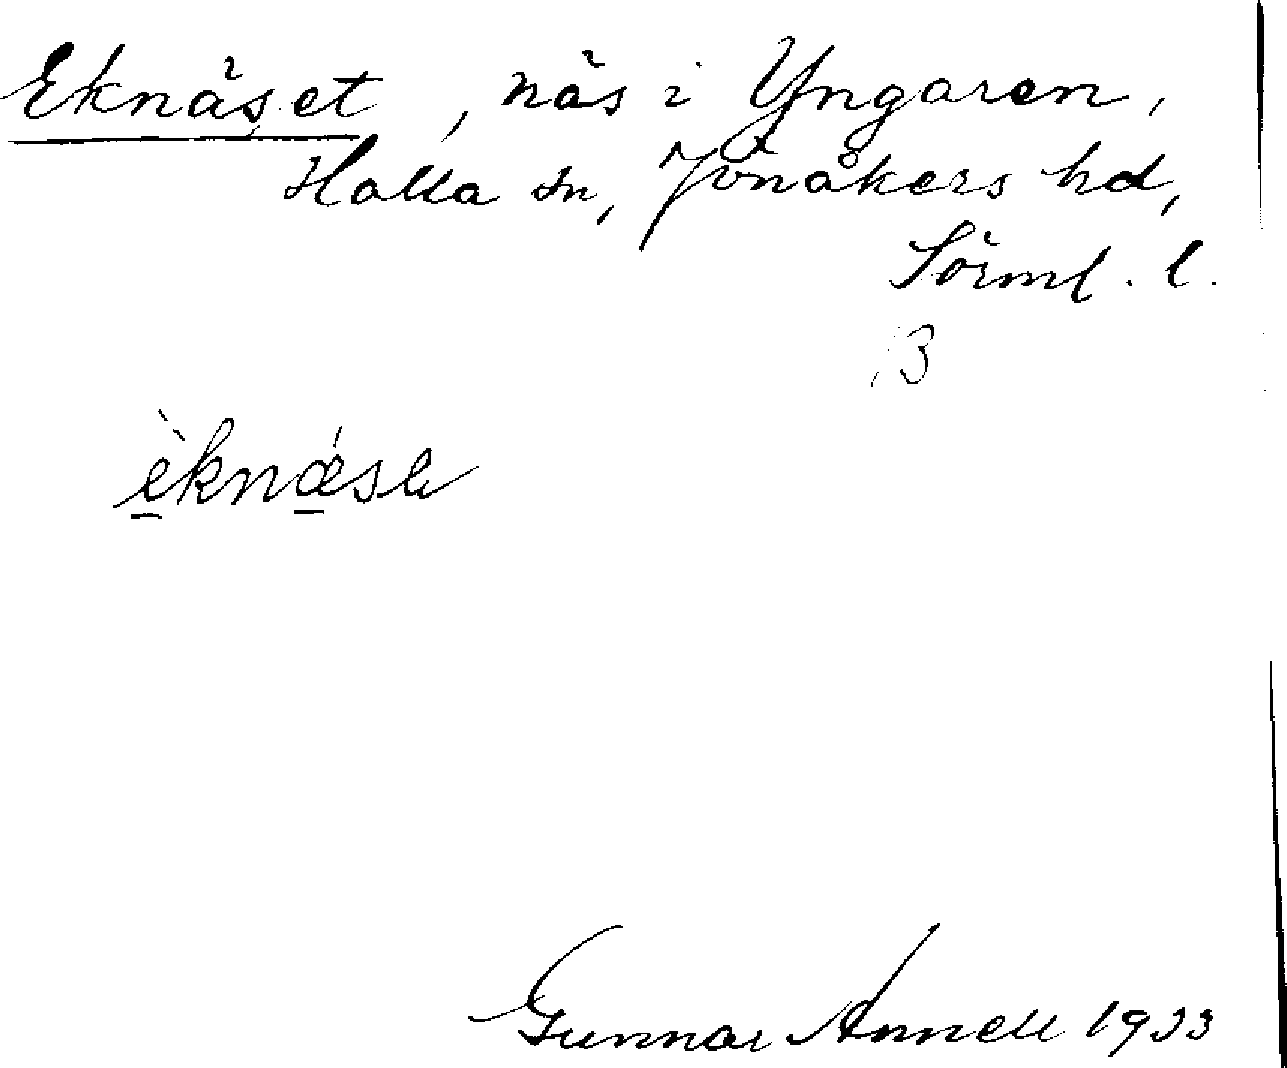 Eknäset, näs i Yngaren,
Halla sn, Jönåkers hd,
Sörml. l.
3
Gunnar Annell 1933